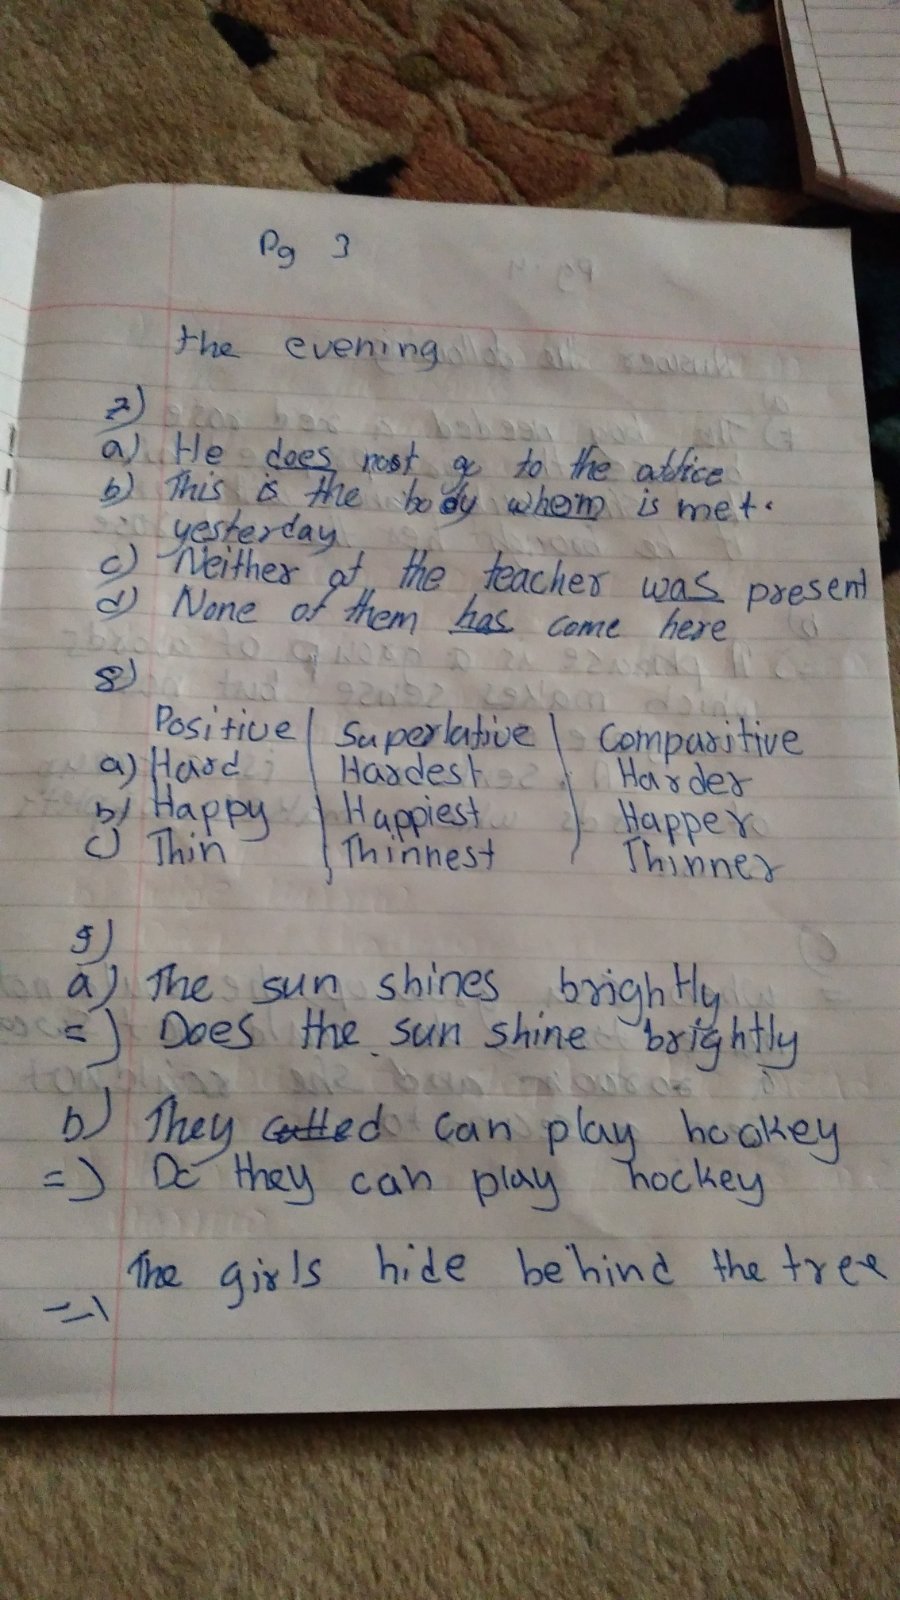 Pg 3
the evening
7)
a) He does not go to the office
b) This is the body whom is met.
yesterday
c) Neither of the teacher was present
d) None of them has come here
8)
Positive Superlative Comparitive
a) Hard Hardest Harder
b) Happy Happiest Happer
c) Thin Thinnest Thinner
9)
a) The sun shines brightly
=) Does the sun shine brightly
b) They can play hockey
=) Do they can play hockey
The girls hide behind the tree
=)